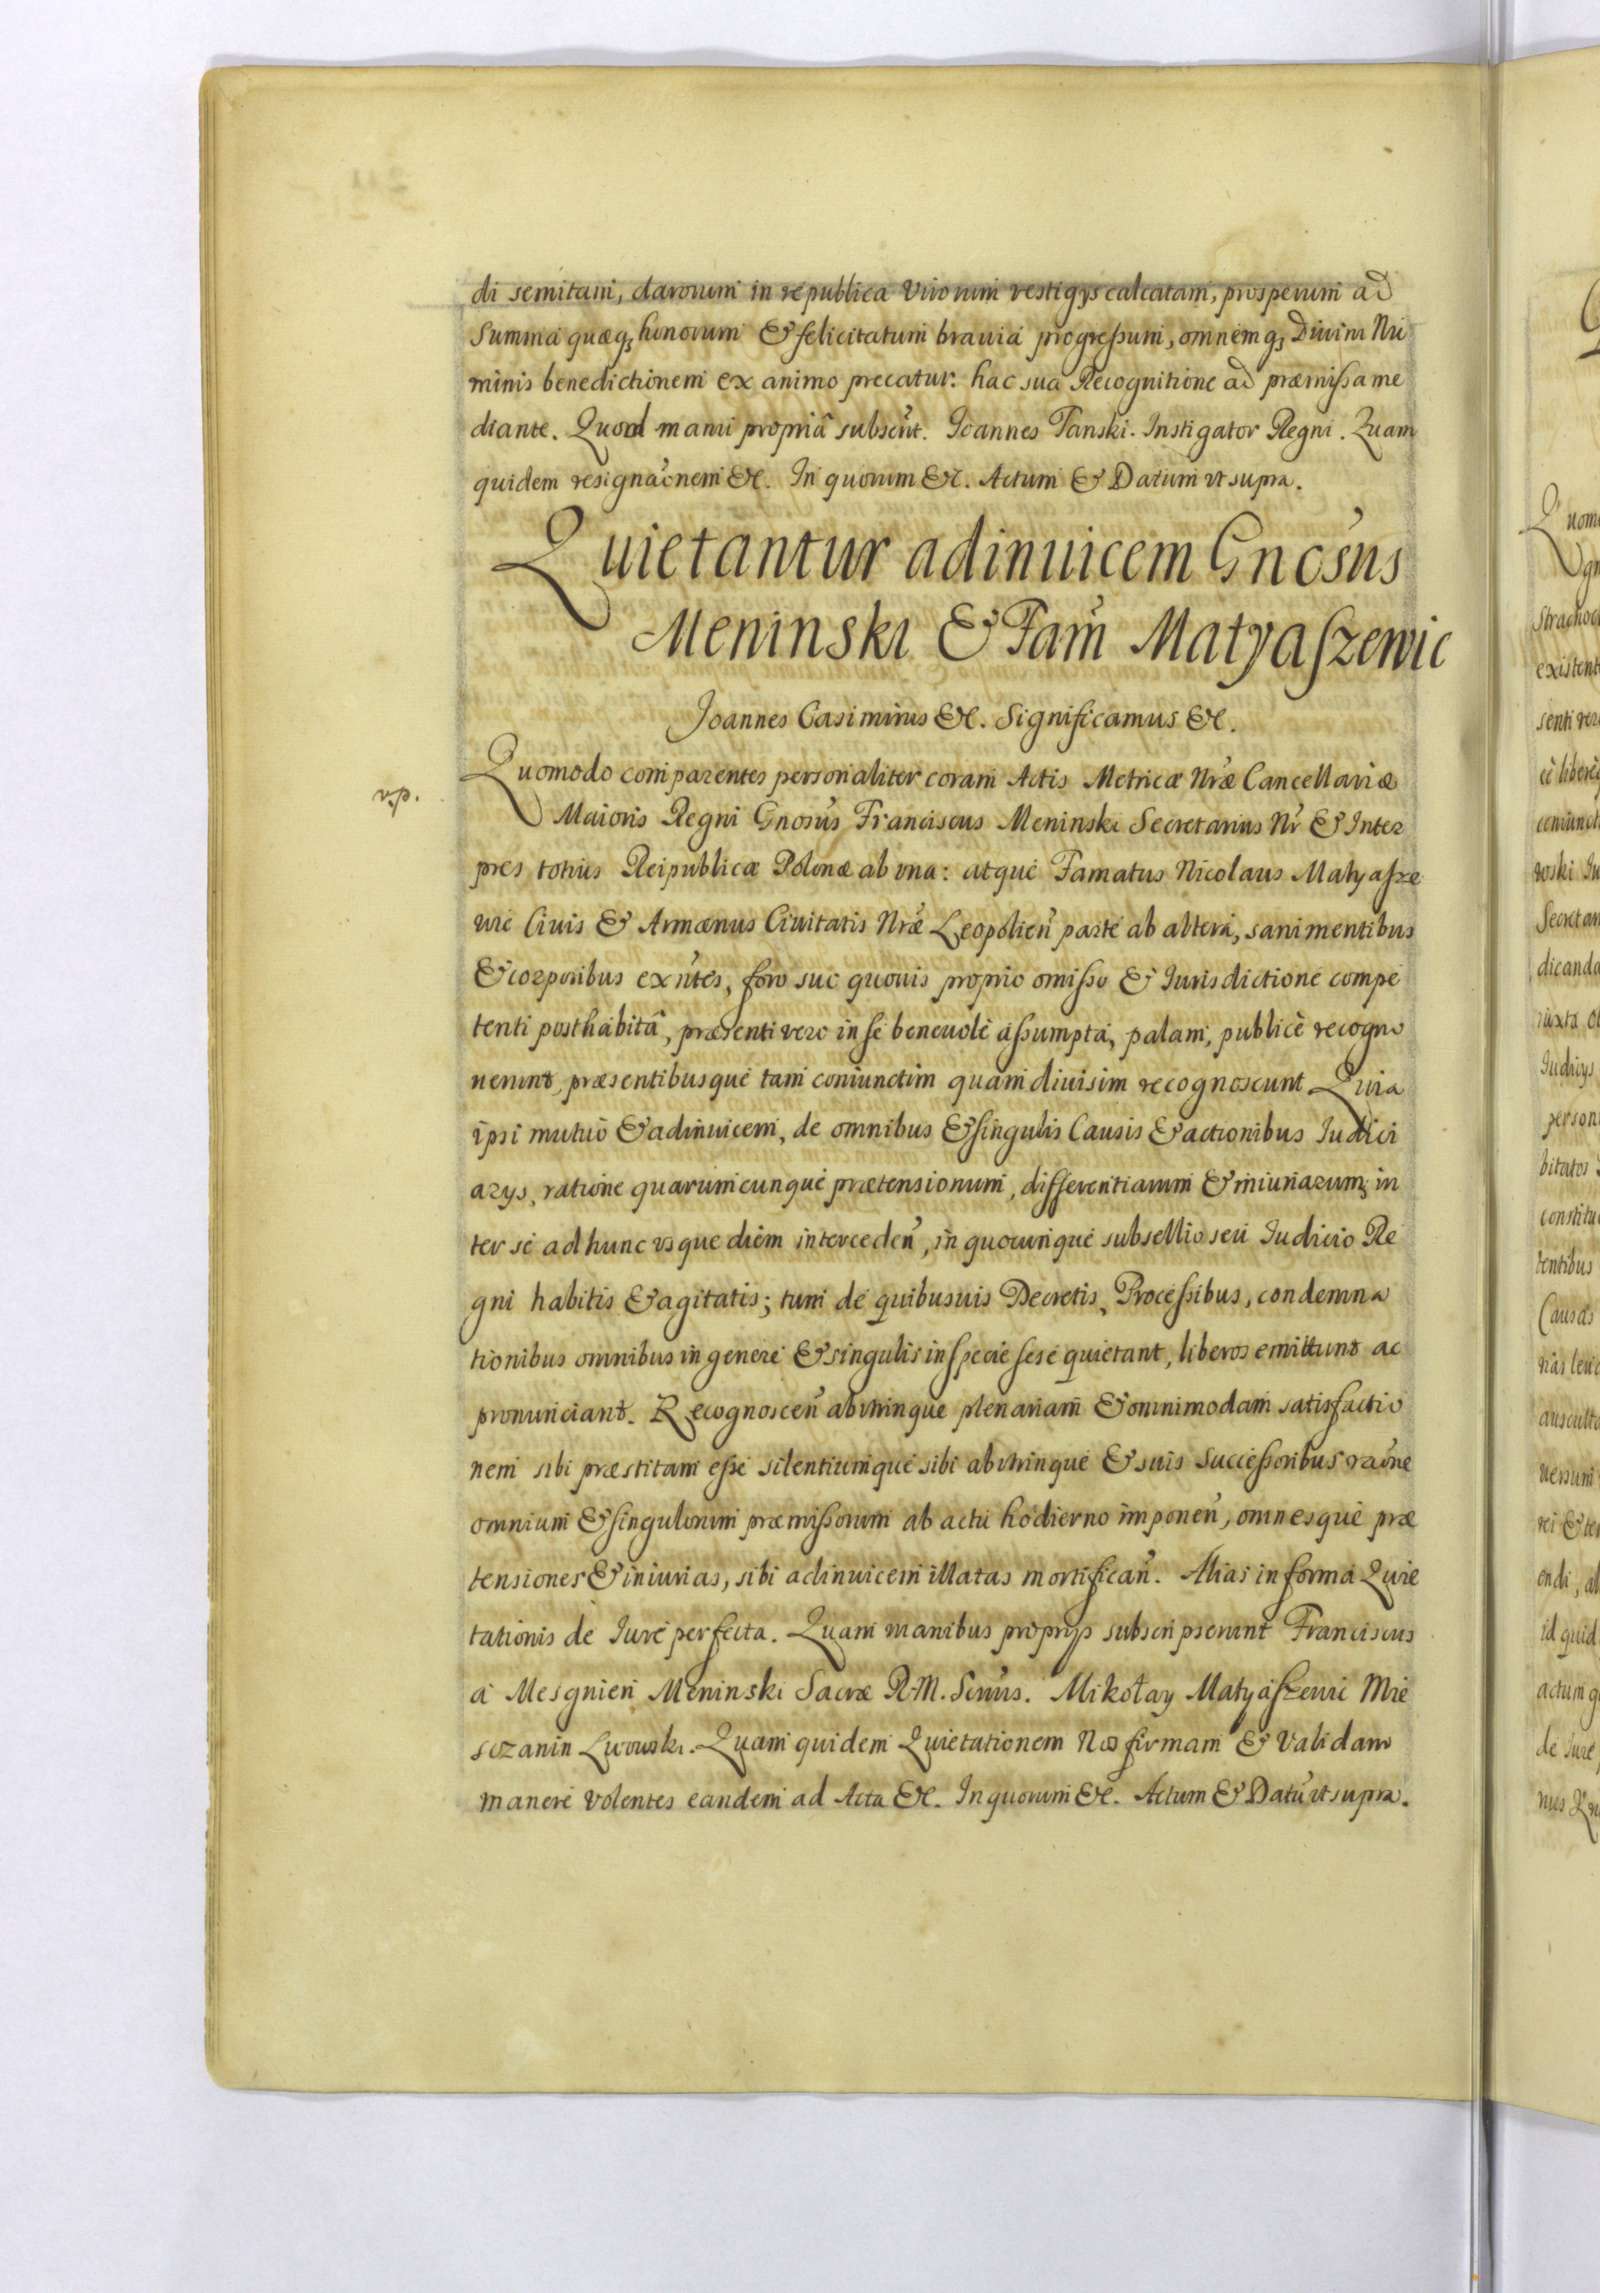 di semitam, clarorum in republica virorum vestigijs calcatam, prosperum ad
summa quæq; honorum & felicitatum brauia progressum, omnemq; Diuini Nu
minis benedictionem ex animo precatur: hac sua Recognitione ad præmissa me
diante. Quod manu propriâ subscrīt. Ioannes Tanski. Instigator Regni. Quam
quidem resignaõnem &c. In quorum &c. Actum & Datum vt supra.
Quietantur adinuicem Gnosus
Meninski & Fam Matyaszewic
Joannes Casimirus &c. Significamus &c.
Quomodo comparentes personaliter coram Actis Metricæ Nræ Cancellariæ
vp.
Maioris Regni Gnosus Franciscus Meninski Secretarius Nr & Inter
pres totius Reipublicæ Polonæ ab vna: atque Famatus Nicolaus Matyasze
wic Ciuis & Armænus Ciuitatis Nræ Leopolien parte ab altera, sani mentibus
& corporibus exntes, foro suo quouis proprio omisso & Iurisdictione compe
tenti posthabitâ, præsenti vero in se beneuolè assumpta, palam, publicè recogno
uerunt, præsentibusque tam coniunctim quam diuisim recognoscunt Quia
ipsi mutuò & adinuicem, de omnibus & singulis Causis & actionibus Iudici
arys, ratione quarumcunque prætensionum, differentiarum & iniuriarum, in
ter se ad hunc vsque diem interceden, in quocunque subsellio seu Iudicio Re
gni habitis & agitatis; tum de quibusuis Decretis, Processibus, condemna
tionibus omnibus in genere & singulis in specie sese quietant, liberos emittunt ac
pronunciant. Recognoscen abvtrinque plenariam & omnimodam satisfactio
nem sibi præstitam esse silentiumque sibi abvtrinque & suis successoribus raõne
omnium & singulorum præmissorum ab actu hodierno imponen, omnesque præ
tensiones & iniurias, sibi adinuicem illatas mortifican. Alias in forma Quie
tationis de Iure perfecta. Quam manibus proprys subscripserunt Franciscus
à Mesgnien Meninski Sacræ R. M. Scrius. Mikołay Matyaszewic Mie
sczanin Lwowski. Quam quidem Quietationem Nos firmam & Validam
manere volentes eandem ad Acta &c. In quorum &c. Actum & Datu vt supra.